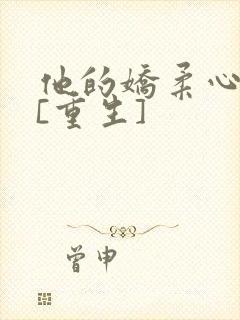 他的娇柔心
[重生]
曾申